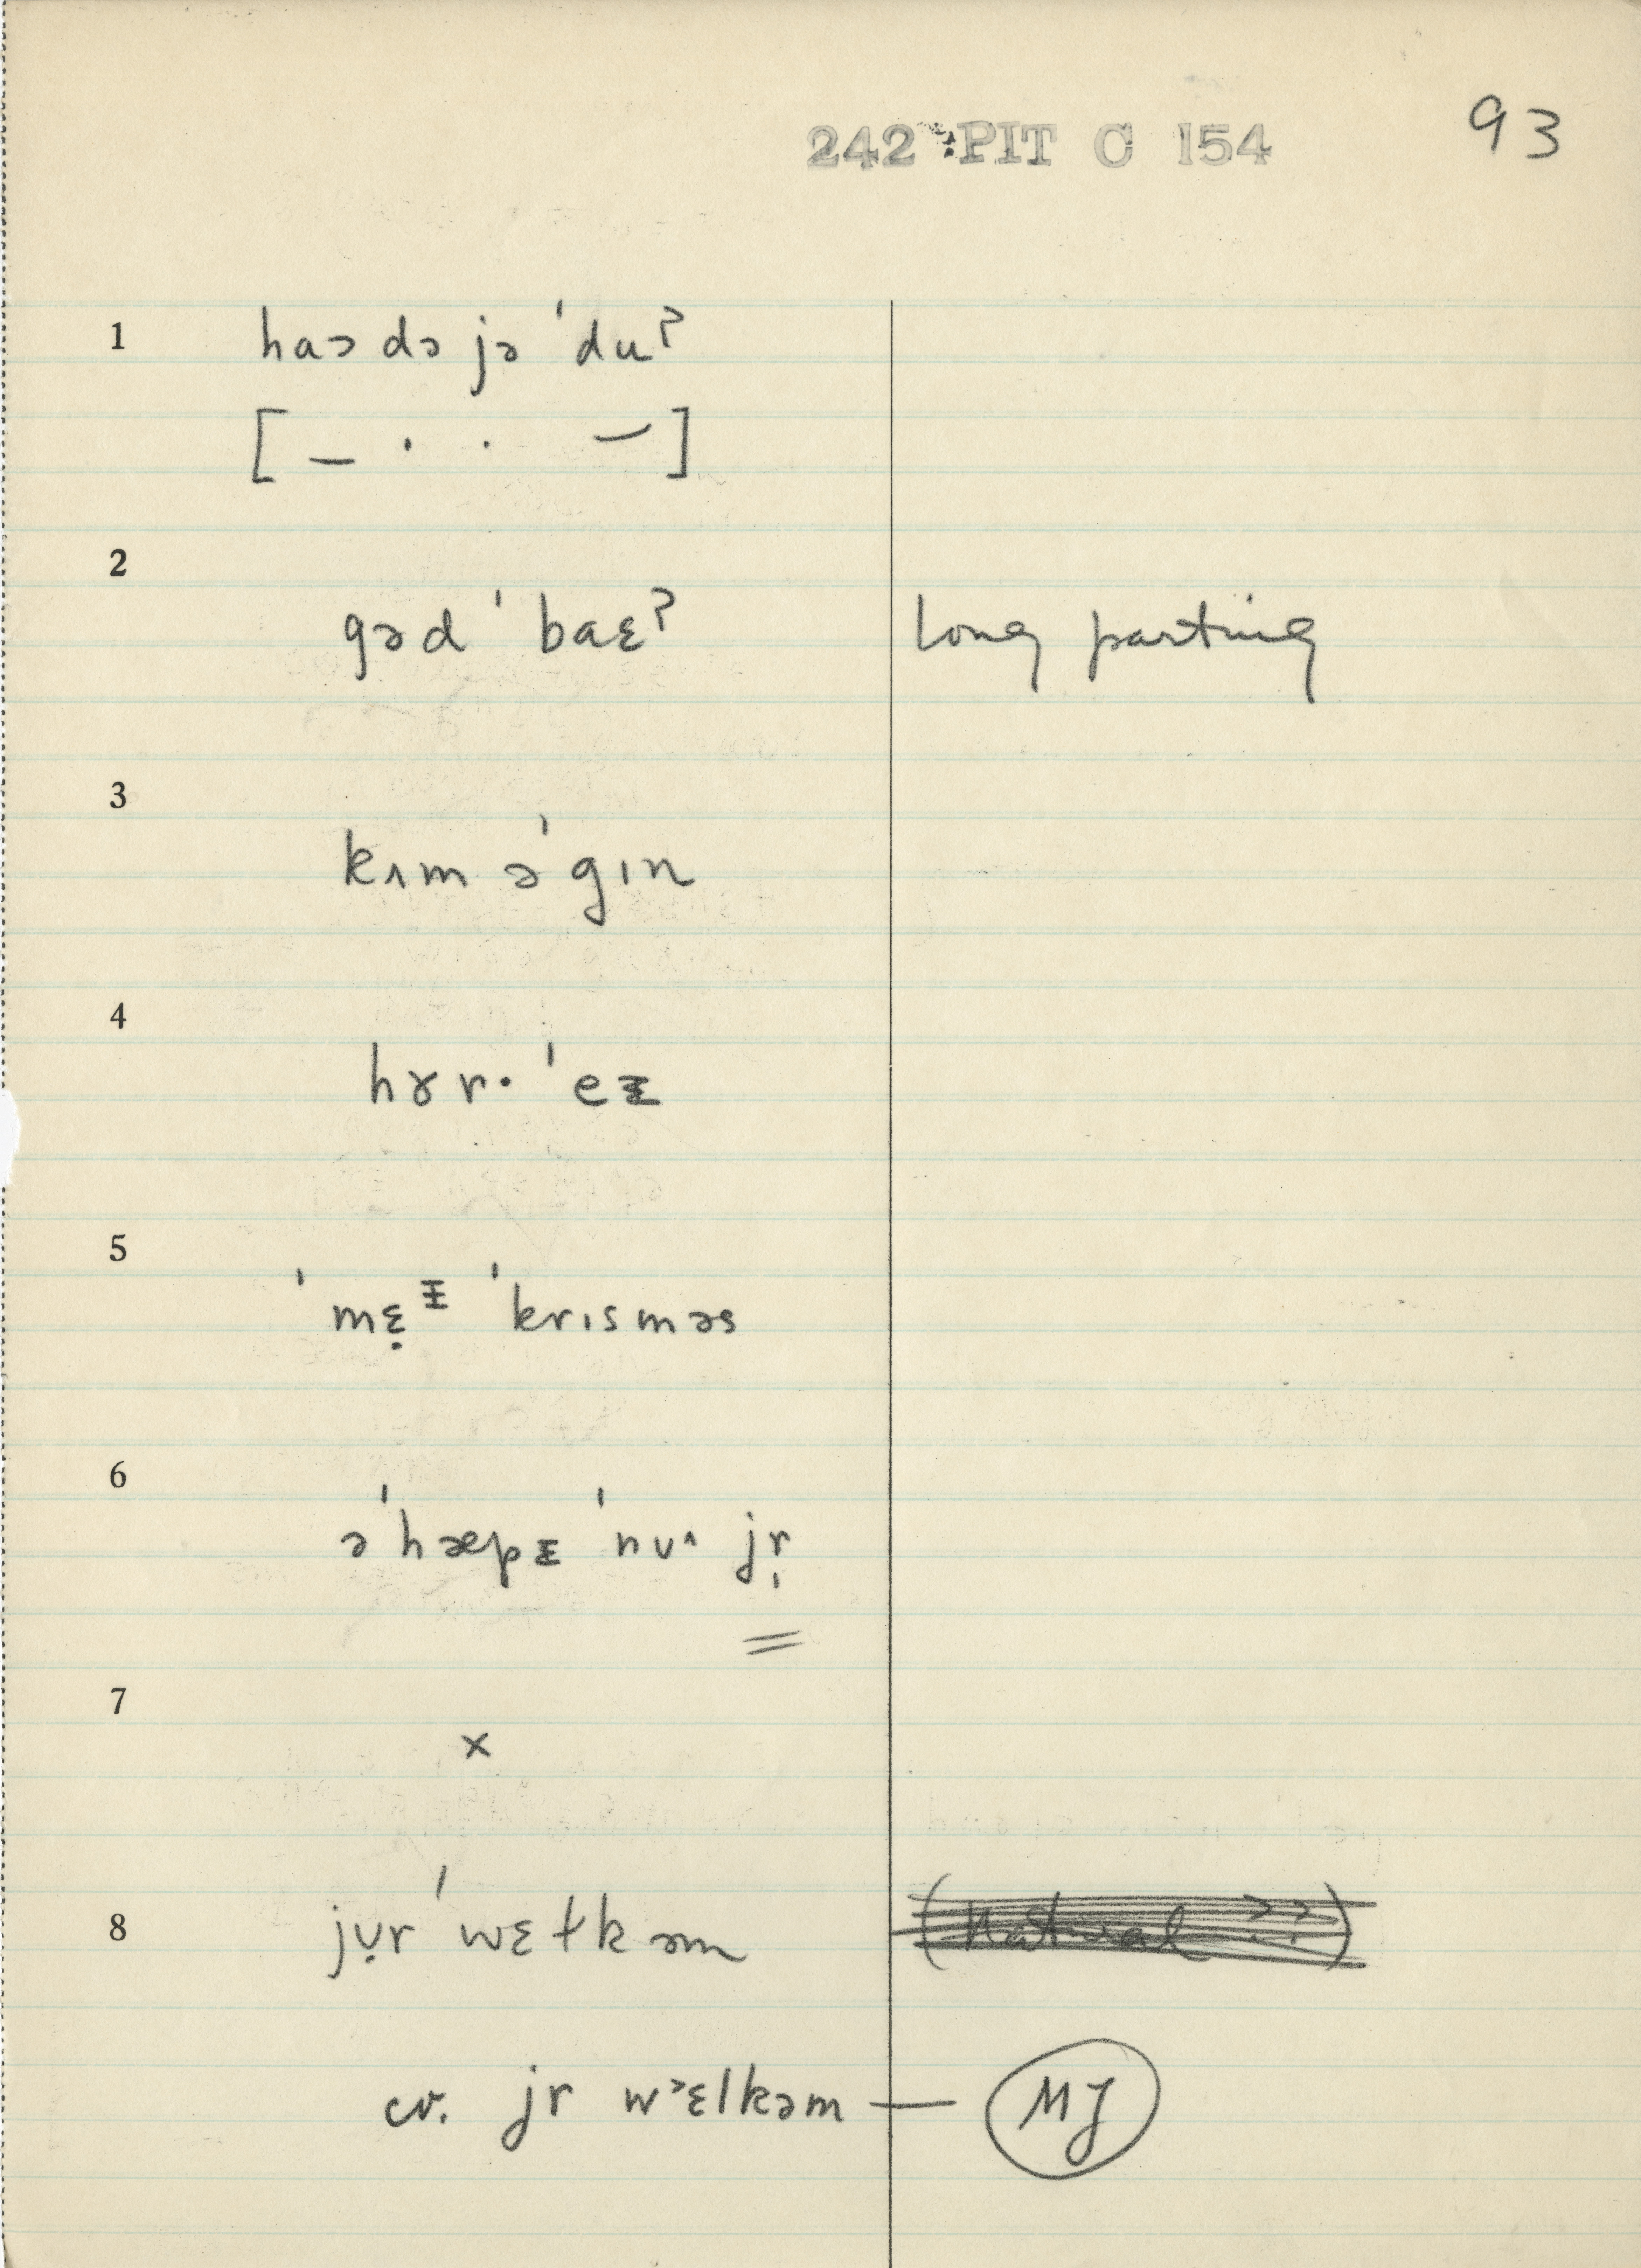 242 PIT C 154
93
1 haɔ də jə ˈdu?
[ – · · – ]
2
gəd ˈbaɛ? long parting
3
kʌm əˈgɪn
4
hɤr· ˈeᵻ
5
ˈmɛ̣ᵻ ˈkrɪsməs
6
əˈhæpᵻ ˈnuʌ jr̩
=
7
x
8 jụr ˈwɛɫkəm (Natural ??)
cv. jr wᵊɛlkəm — MJ